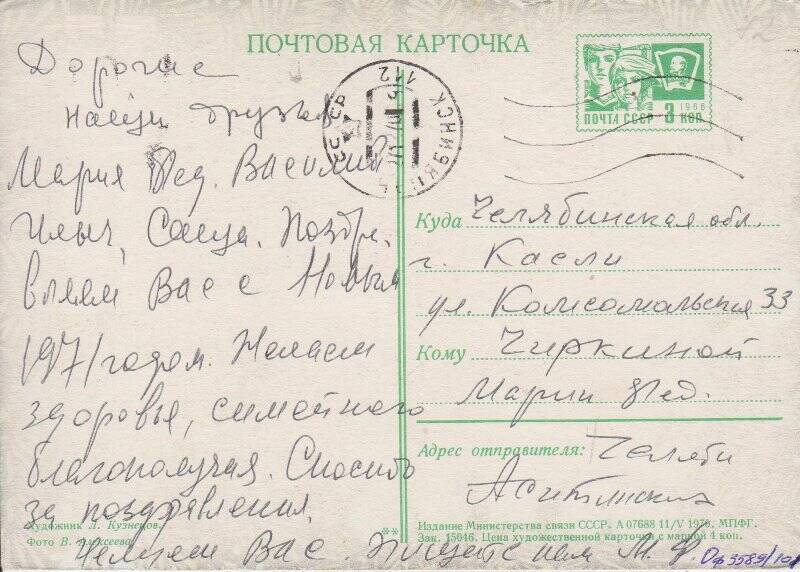 ПОЧТОВАЯ КАРТОЧКА
Дорогие
наши друзья
Мария Фед. Василий
Ильич, Саша. Поздр.
вляем Вас с Новым
1971 годом. Желаем
здоровья, симейного
благополучия. Спасибо
за поздравления.
Целуем Вас. Пишите нам М. Ф.
Художник Л. Кузнецов.
Фото В. Алексеева.
**
СССР
ЧЕЛЯБИНСК
112
1966
ПОЧТА СССР 3 КОП
Куда Челябинская обл.
г. Касли
ул. Комсомальская 33
Кому Чиркиной
Марии Фед.
Адрес отправителя: Челяби
Издание Министерства связи СССР. А 07688 11/V 1970. МПФГ.
Зак. 15046. Цена художественной карточки с маркой 4 коп.
Оф 3589/101
52